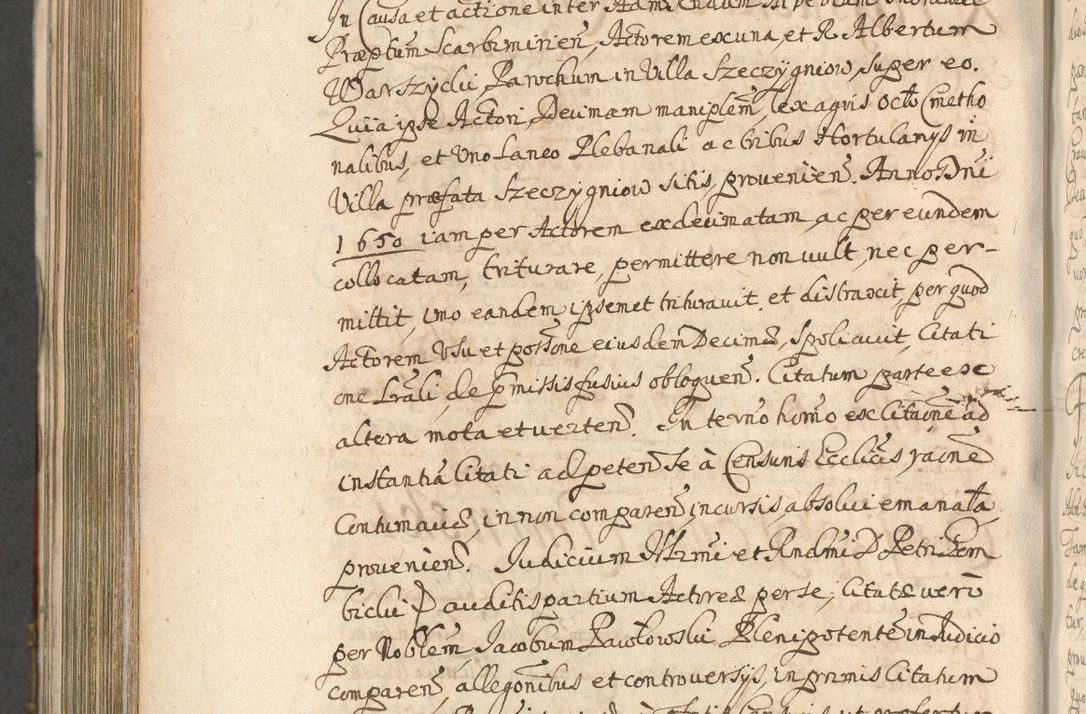 In Causa et actione inter Adm
Præptum Scarbimirien, Actorem ex una, et R. Albertum
Warszycki, Parochum in Villa Szeczygniow, super eo.
Quia ipse Actori, Decimam maniplem, ex agris Octo Cmetho
nalibus, et Uno Laneo Plebanali ac tribus Hortulanys in
Villa præfata Szeczygniow sitis, provenien. Anno Dni
1650 iam per Actorem exdecimatam, ac per eundem
collocatam, triturare, permittere non vult, nec per-
mittit, imo eandem ipsemet trituravit, et distraxit, per quod
Actorem Usu et possone eiusdem Decimæ, spoliavit, Citati
one Lrali, de præmissis fusius obloquen. Citatum parte ex
altera mota et verten. In termo hmo ex Citaone ad
instantia Citati ad peten se à Censuris Ecclicis raone
Contumaciæ, in non comparen, incursis, absolui emanata,
provenien. Judicium Illrmi et Rndmi D Petri Gem
bicki auditis partium Actoreæ per se, Citatæ vero
per Noblem, Jacobum Pawłowski Plenipotente in Judicio
comparen, allegonibus et controversijs, in primis Citatum